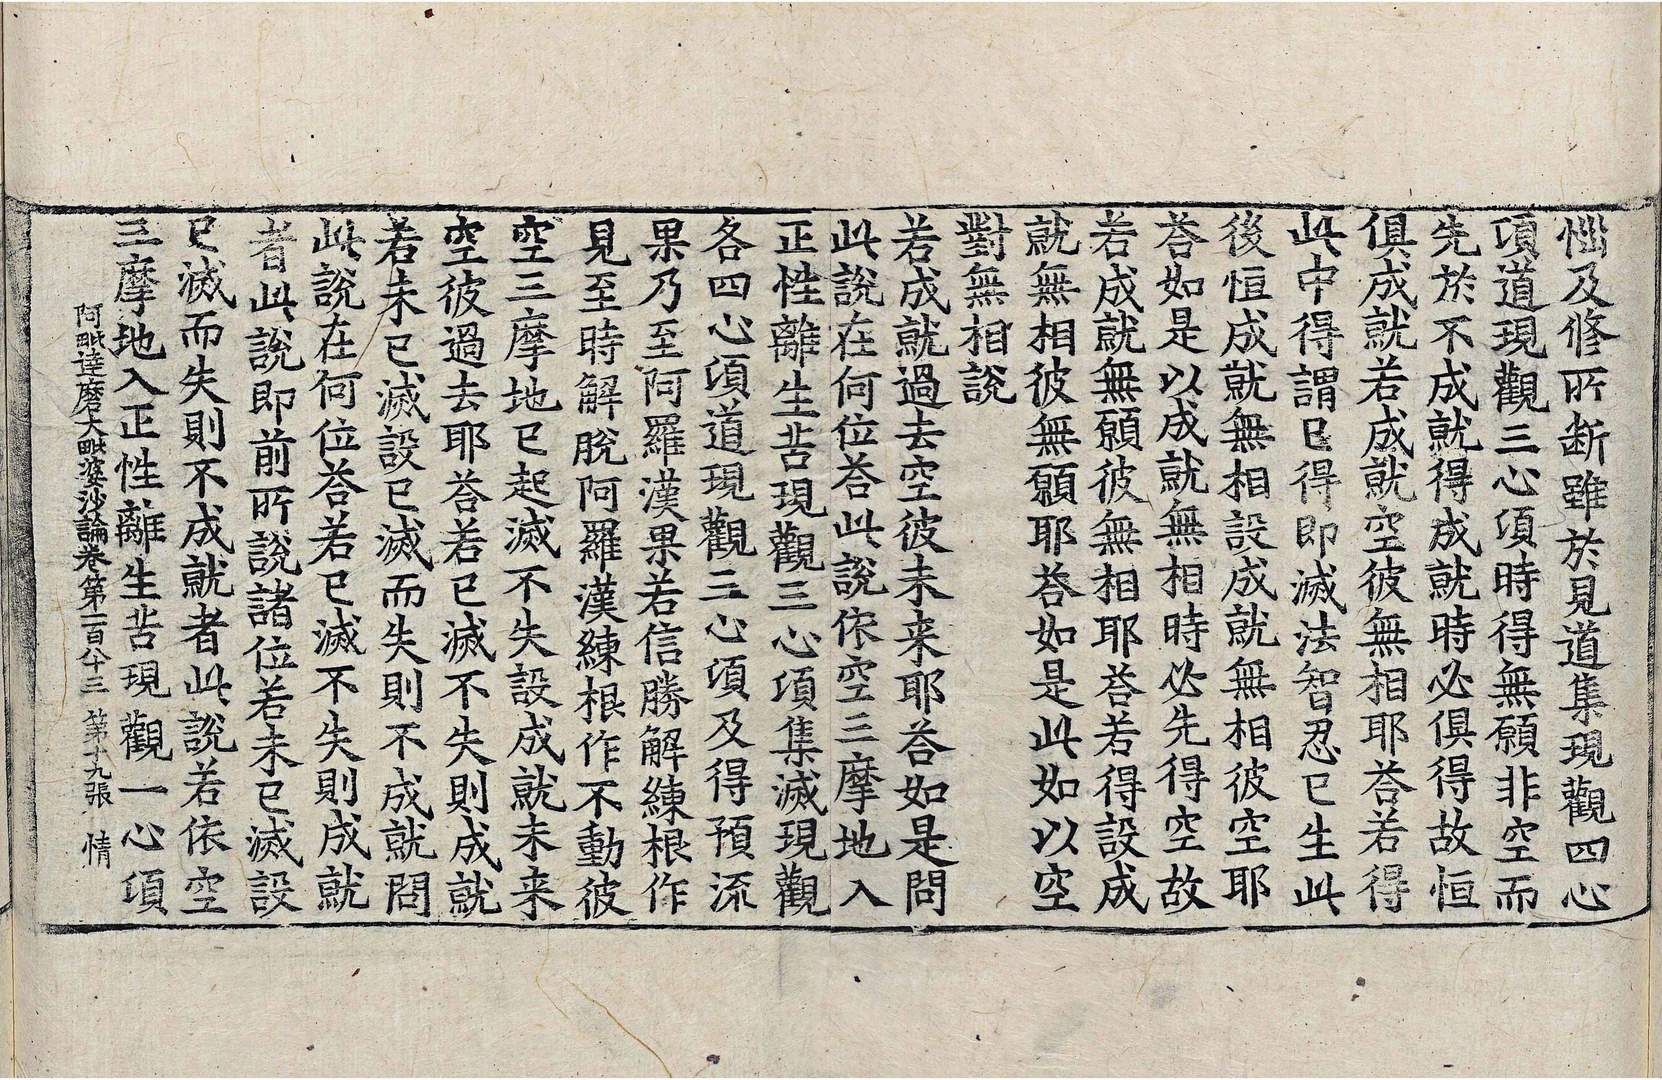 惱及修所断雖於見道集現觀四心
頃道現觀三心頃時得無願非空而
先於不成就得成就時必俱得故恒
俱成就若成就空彼無相耶荅若得
此中得謂已得即滅法智忍已生此
後恒成就無相設成就無相彼空耶
荅如是以成就無相時必先得空故
若成就無願彼無相耶荅若得設成
就無相彼無願耶荅如是此如以空
對無相說
若成就過去空彼未来耶荅如是問
此說在何位荅此說依空三摩地入
正性離生苦現觀三心頃集滅現觀
各四心頃道現觀三心頃及得預流
果乃至阿羅漢果若信勝解練根作
見至時解脫阿羅漢練根作不動彼
空三摩地已起滅不失設成就未来
空彼過去耶荅若已滅不失則成就
若未已滅設已滅而失則不成就問
此說在何位荅若已滅不失則成就
者此說即前所說諸位若未已滅設
已滅而失則不成就者此說若依空
三摩地入正性離生苦現觀一心頃
阿毗達磨大毗婆沙論卷第一百八十三 第十九張 情